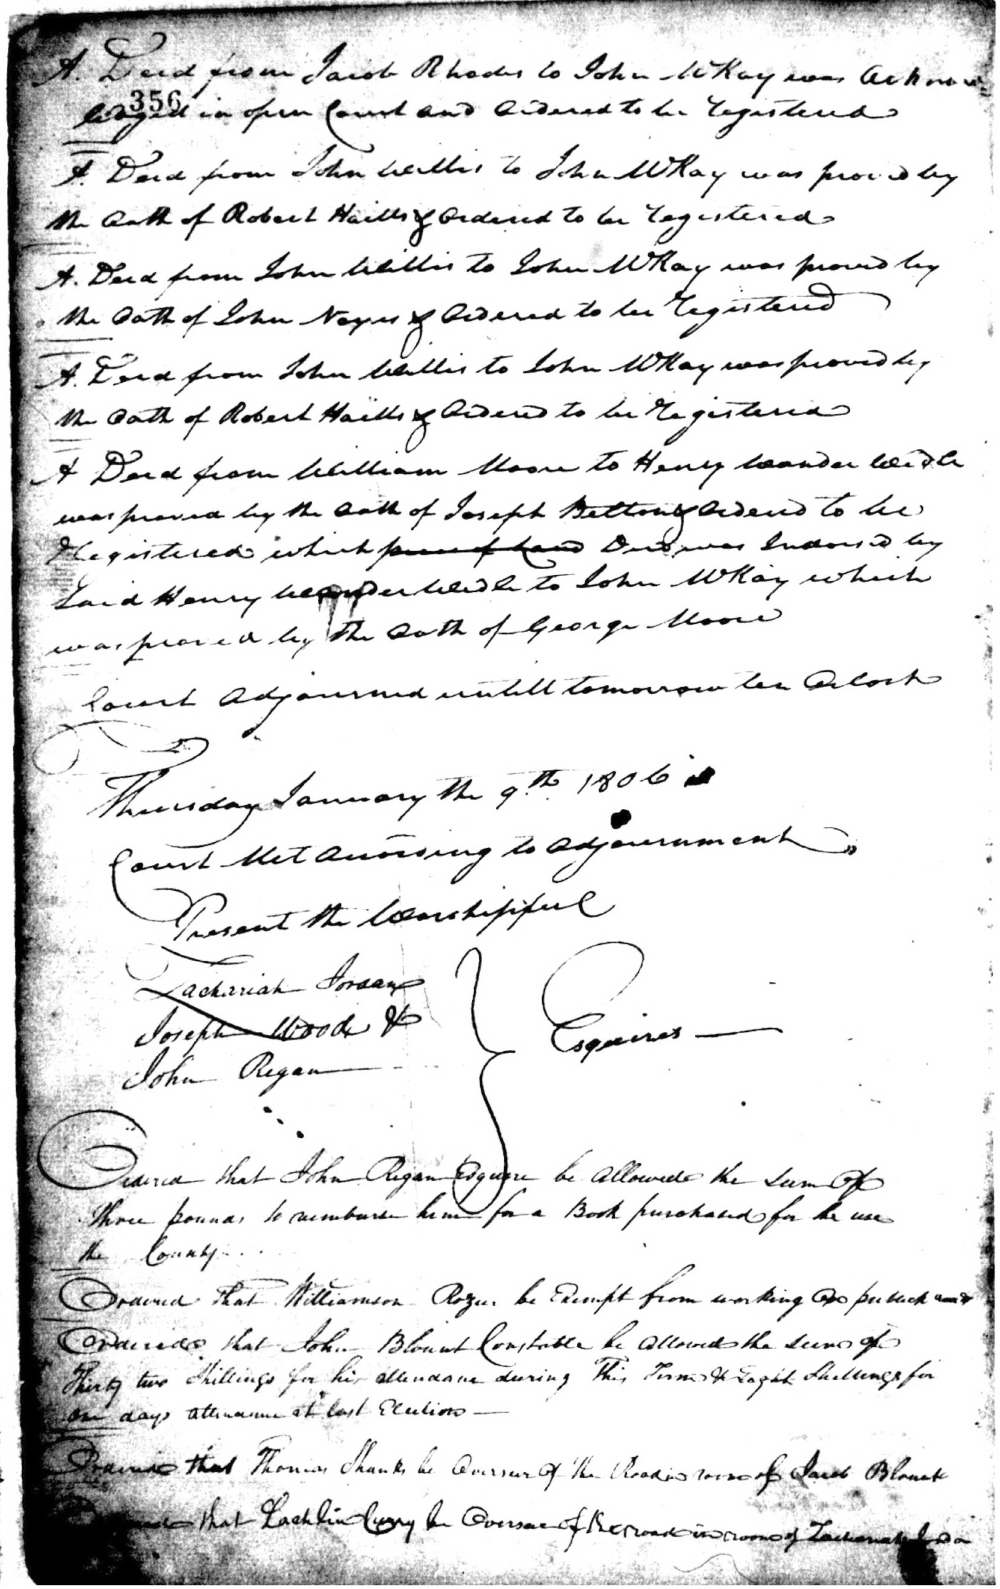 A. Deed from Jacob Rhodes to John McKay was Acknow=
356
ledged in open Court and Ordered to be Registered
A. Deed from John Willis to John McKay was proved by
the Oath of Robert Hails & Ordered to be Registered
A. Deed from John Willis to John McKay was proved by
the Oath of John Noyes & Ordered to be Registered
A. Deed from John Willis to John McKay was proved by
the Oath of Robert Hails & Ordered to be Registered
A Deed from William Moore to Henry Wanderweidle
was proved by the Oath of Joseph Betton & Ordered to be
Registered which Deed was Indorsed by
Said Henry Wanderweidle to John McKay which
was proved by the Oath of George Moore
Court Adjourned untill tomorrow ten Oclock
Thursday January the 9th. 1806
Court Met According to Adjournment
Present the Worshipful
Zachariah Jordan
Joseph Wood & Esquires
John Regan
Ordered that John Regan Esquire be allowed the sum of
three pounds to reimburse him for a Book purchased for the use
the County
Ordered that Williamson Rozer be Exempt from working on publick
Ordered that John Blount Constable be allowed the sum of
Thirty two Shillings for his attendance during This Term & Eaght Shellings for
one days attendance at last Election
Ordered that Thomas Shanks be Overseer of the Road in room of Jacob Blount
that Lachlin Curry be Overseer of the road in room of Zachariah Jordan